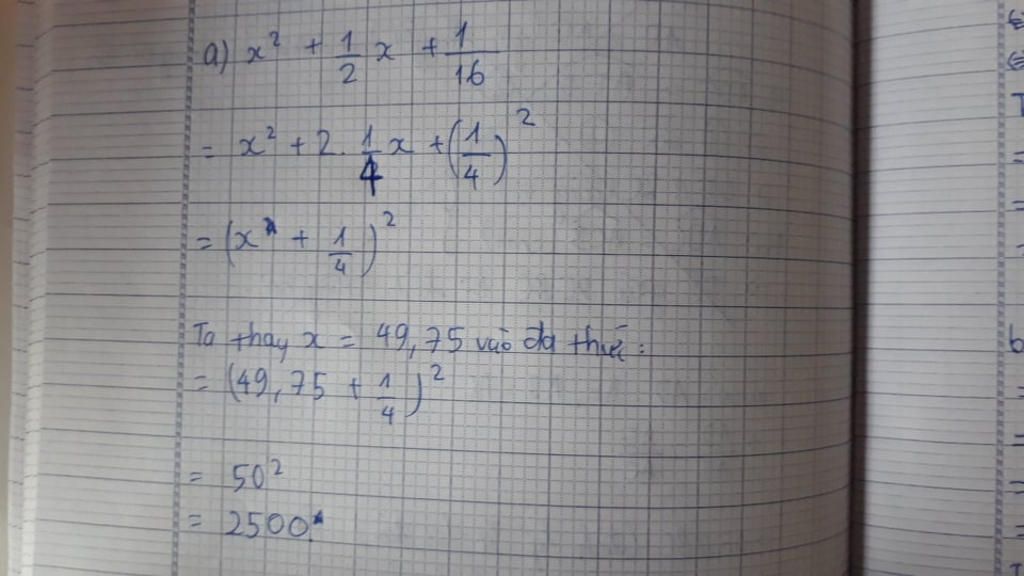 a) x² + 1/2 x + 1/16
= x² + 2. 1/4 x + (1/4)²
= (x + 1/4)²
Ta thay x = 49,75 vào đa thức:
= (49,75 + 1/4)²
= 50²
= 2500